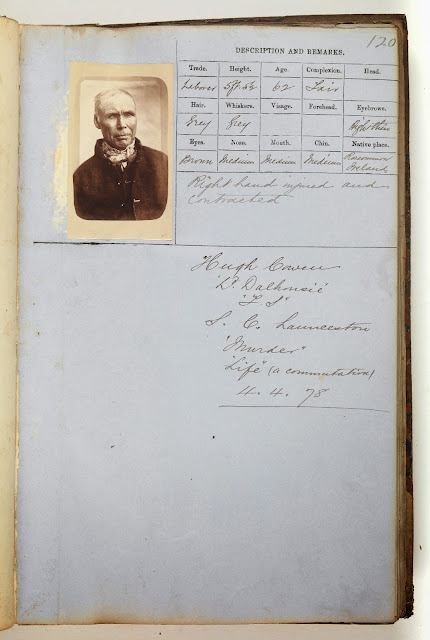 120
DESCRIPTION AND REMARKS.
Trade. Height. Age. Complexion. Head.
Laborer 5ft 5½ 62 Fair
Hair. Whiskers. Visage. Forehead. Eyebrows.
Grey Grey
Eyes. Nose. Mouth. Chin. Native place.
Brown Medium Medium Medium Roscommon Ireland
Right hand injured and
contracted
Hugh Cowen
Ld Dalhousie
"F S"
S. C. Launceston
"Murder"
"Life" (a commutation)
4. 4. 78